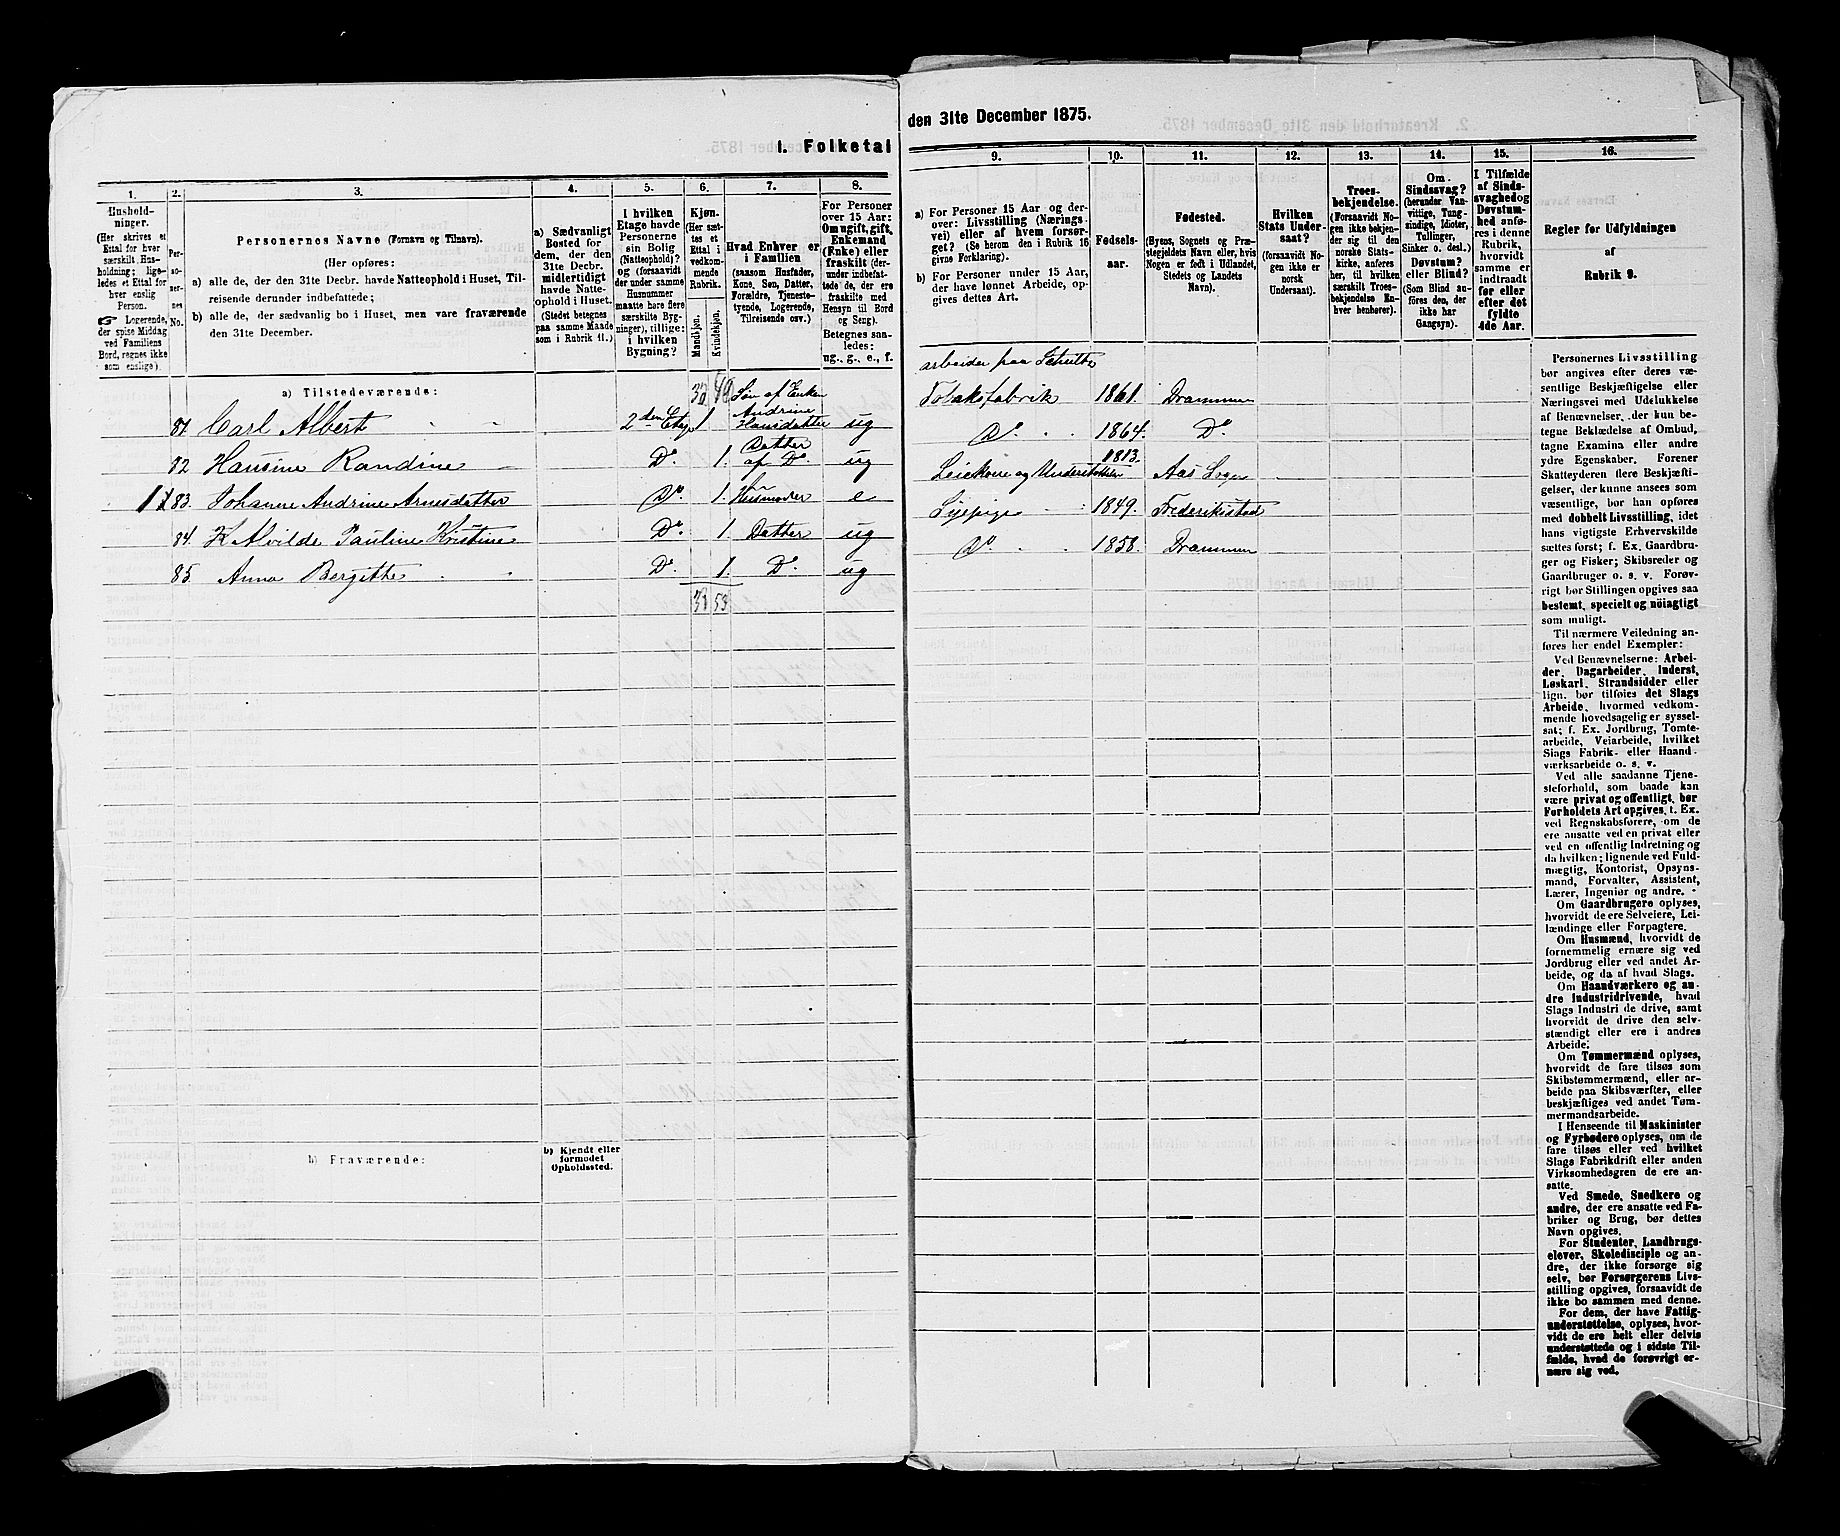 1. Folketal
den 31te December 1875.
1.
2.
3.
4.
5.
6.
7.
8.
9.
10.
11.
12.
13.
14.
15.
16.
Hushold-
ninger.
(Her skrives et
Ettal for hver
særskilt Hus-
holdning; lige-
ledes et Ettal for
hver enslig
Person.
☞ Logerende,
der spise Middag
ved Familiens
Bord, regnes ikke
som enslige).
Per-
so-
ner-
nes
No.
Personernes Navne (Fornavn og Tilnavn).
(Her opføres:
a) alle de, der den 31te Decbr. havde Natteophold i Huset, Til-
reisende derunder indbefattede;
b) alle de, der sædvanlig bo i Huset, men vare fraværende
den 31te December.
a) Sædvanligt
Bosted for
dem, der den
31te Decbr.
midlertidigt
havde Natte-
ophold i Huset.
(Stedet betegnes
paa samme Maade
som i Rubrik 11.)
I hvilken
Etage havde
Personerne
sin Bolig
(Natteophold)?
og (forsaavidt
der under samme
Husnummer
maatte høre flere
særskilte Byg-
ninger), tillige:
i hvilken
Bygning?
Kjøn.
(Her sæt-
tes et
Ettal i
vedkom-
mende
Rubrik.
Mandkjøn.
Kvindekjøn.
Hvad Enhver er
i Familien
(saasom Husfader,
Kone, Søn, Datter,
Forældre, Tjeneste-
tyende, Logerende,
Tilreisende osv.)
For Personer
over 15 Aar:
Om ugift, gift,
Enkemand
(Enke) eller
fraskilt (der-
under indbefat-
tede de, der ere
fraskilte med
Hensyn til Bord
og Seng).
Betegnes saa-
ledes:
ug., g., e., f.
a) For Personer 15 Aar og der-
over: Livsstilling (Nærings-
vei) eller af hvem forsør-
get? (Se herom den i Rubrik 16
givne Forklaring).
b) For Personer under 15 Aar,
der have lønnet Arbeide, op-
gives dettes Art.
Fødsels-
aar.
Fødested.
(Byens, Sognets og Præ-
stegjeldets Navn eller, hvis
Nogen er født i Udlandet,
Stedets og Landets
Navn).
Hvilken
Stats Under-
saat?
(forsaavidt No-
gen ikke er
norsk
Undersaat).
Troes-
bekjendelse.
(Forsaavidt No-
gen ikke bekjen-
der sig til den
norske Stats-
kirke, anføres
her, til hvilken
særskilt Troes-
bekjendelse En-
hver henhører).
Om
Sindssvag?
(herunder Van-
vittige, Tung-
sindige, Idioter,
Tullinger,
Sinker o. desl.)
Døvstum?
eller Blind?
(Som Blind an-
føres den, der
ikke har
Gangsyn).
I Tilfælde
af Sinds-
svaghed og
Døvstum-
hed anfø-
res i denne
Rubrik,
hvorvidt
samme er
indtraadt
før eller
efter det
fyldte
4de Aar.
Regler for Udfyldningen
af
Rubrik 9.
a) Tilstedeværende:
Søn af Enken
81 Carl Albert 2den Etage 1 Andrine Hansdatter ug
82 Hansine Randine Do. 1. Datter af Do. ug
83. Johanne Andrine Arnesdatter Do. 1. Husmoder e
84. K Alvilde Pauline Kristine Do. 1 Datter ug
85. Anna Bergithe Do. 1. Do. ug
53
arbeider paa Schultz
Tobaksfabrik 1861. Drammen
Do. 1864. Do.
Leiekone og Understøttelse 1813. Aas Sogn
Sypige 1849. Frederikstad
Do. 1858. Drammen
b) Fraværende:
b) Kjendt eller
formodet
Opholdssted.
Personernes Livsstilling
bør angives efter deres væ-
sentlige Beskjæftigelse eller
Næringsvei med Udelukkelse
af Benævnelser, der kun be-
tegne Beklædelse af Ombud,
tagne Examina eller andre
ydre Egenskaber. Forener
Skatteyderen flere Beskjæfti-
gelser, der kunne ansees som
særskilte, bør han opføres
med dobbelt Livsstilling, idet
hans vigtigste Erhvervskilde
sættes først; f. Ex. Gaardbru-
ger og Fisker; Skibsreder og
Gaardbruger o. s. v. Forøv-
rigt bør Stillingen opgives saa
bestemt, specielt og nøiagtigt
som muligt.
Til nærmere Veiledning an-
føres her endel Exempler:
Ved Benævnelserne: Arbei-
der, Dagarbeider, Inderst,
Løskarl, Strandsidder eller
lign. bør tilføies det Slags
Arbeide, hvormed vedkom-
mende hovedsagelig er syssel-
sat; f. Ex. Jordbrug, Tomte-
arbeide, Veiarbeide, hvilket
Slags Fabrik- eller Haand-
værksarbeide o. s. v.
Ved alle saadanne Tjene-
steforhold, som baade kan
være privat og offentligt, bør
Forholdets Art opgives, t. Ex.
ved Regnskabsførere, om de
ere ansatte ved en privat eller
ved en offentlig Indretning og
da hvilken; lignende ved Fuld-
mægtig, Kontorist, Opsyns-
mand, Forvalter, Assistent,
Lærer, Ingeniør og andre.
Om Gaardbrugere oplyses,
hvorvidt de ere Selveiere, Lei-
lændinge eller Forpagtere.
Om Husmænd, hvorvidt de
fornemmelig ernære sig ved
Jordbrug eller ved andet Ar-
beide, og da af hvad Slags.
Om Haandværkere og an-
dre Industridrivende, hvad
Slags Industri de drive, samt
hvorvidt de drive den selv-
stændigt eller ere i andres
Arbeide.
Om Tømmermænd oplyses,
hvorvidt de fare tilsøs som
Skibstømmermænd, eller ar-
beide paa Skibsværfter, eller
beskjæftiges ved andet Tøm-
mermandsarbeide.
I Henseende til Maskinister
og Fyrbødere oplyses, om de
fare tilsøs eller ved hvilket
Slags Fabrikdrift eller anden
Virksomhedsgren de ere an-
satte.
Ved Smede, Snedkere og
andre, der ere ansatte ved Fa-
briker og Brug, bør dettes
Navn opgives.
For Studenter, Landbrugs-
elever, Skoledisciple og an-
dre, der ikke forsørge sig
selv, bør Forsørgerens Livs-
stilling opgives, forsaavidt de
ikke bo sammen med denne.
For dem, der have Fattig-
understøttelse, oplyses, hvor-
vidt de ere helt eller delvis
understøttede og i sidste Til-
fælde, hvad de forøvrigt er-
nære sig ved.